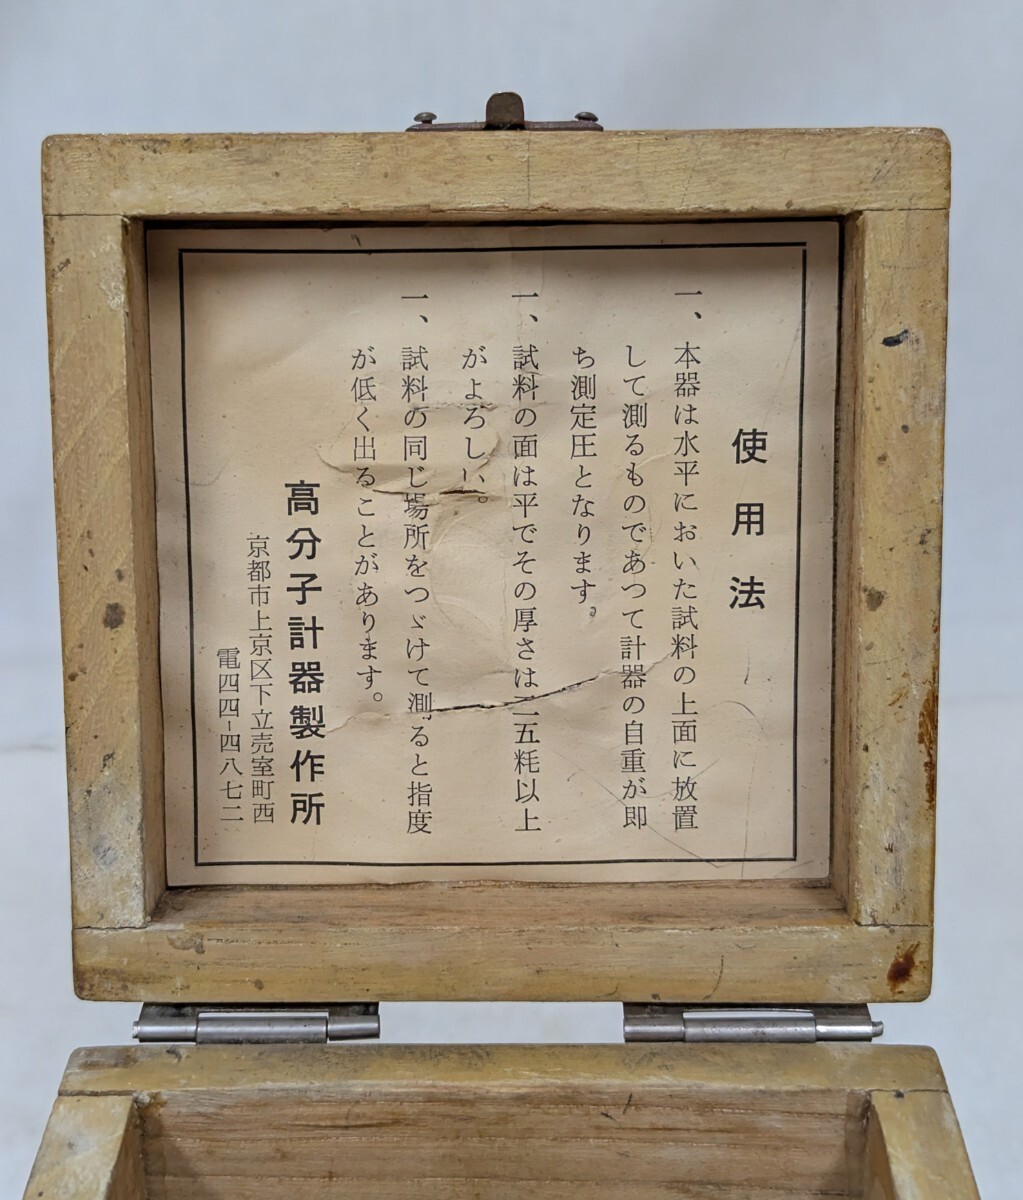 使用法
一、本器は水平においた試料の上面に放置
して測るものであつて計器の自重が即
ち測定圧となります。
一、試料の面は平でその厚さは二五粍以上
がよろしい。
一、試料の同じ場所をつゞけて測ると指度
が低く出ることがあります。
高分子計器製作所
京都市上京区下立売室町西
電四四-四八七二